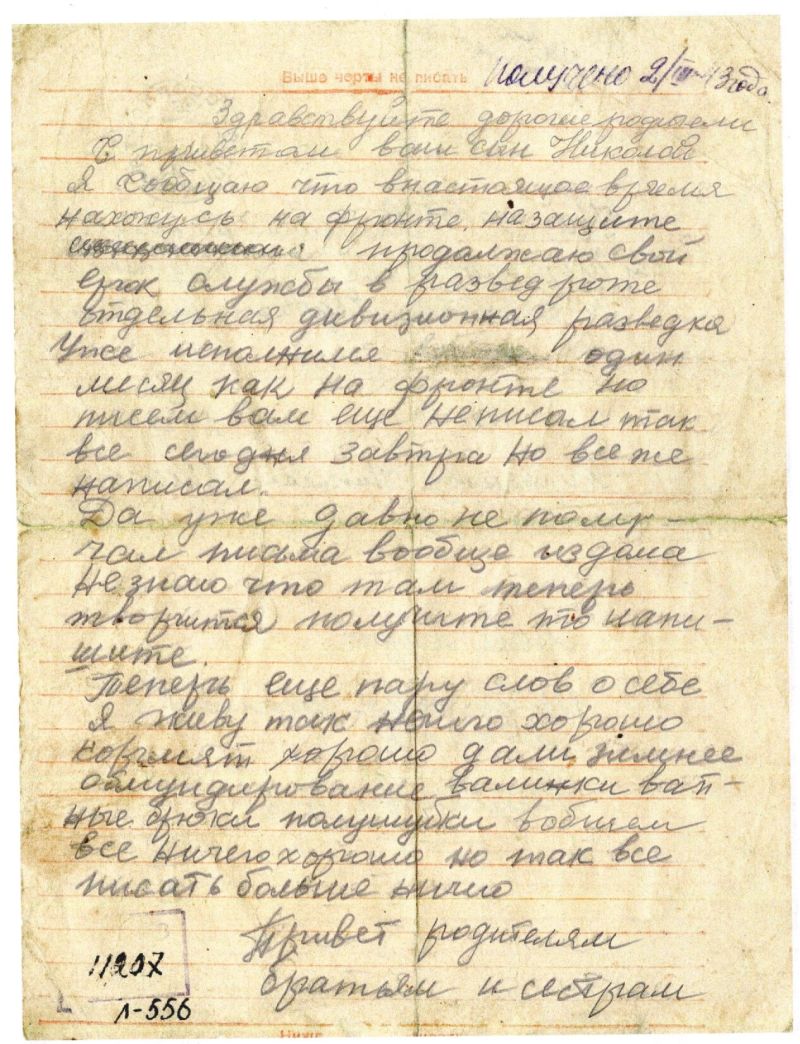 Выше черты не писать
получено 2/III-43 года.
Здравствуйте дорогие родители
С приветом ваш сын Николай
Я сообщаю что внастоящее время
нахожусь на фронте, назащите
продолжаю свой
срок службы в разведроте
отдельная дивизионная разведка
Уже исполнился один
месяц как на фронте но
писем вам еще неписал так
все сегодня завтра но все же
написал.
Да уже давно не полу-
чал писма вообще издома
незнаю что там теперь
творится получите то напи-
шите.
Теперь еще пару слов о себе
Я живу так хорошо
кормят хорошо дали зимнее
обмундирование валинки ват-
ные брюки полушубки вобщем
все ничего хорошо но так все
писать больше ничего
Привет родителям
братьям и сестрам
11207
Л-556